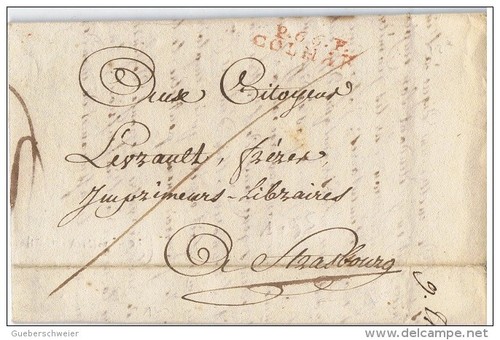 P.66.P.
COLMAR
Aux Citoyens
Levrault, frères,
Imprimeurs-Libraires
A Strasbourg
Gueberschweier
delcampe.net